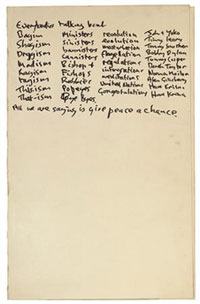 Everybodies talking bout
Bagism Ministers revolution John + Yoko
Shagism sinisters evolution Timmy Leary
Dragism bannisters Tommy Smothers
Madism Bishops Bobby Dylan
Ragism regulation Tommy Cooper
Tagism integrations Derek Taylor
Thisism Popeyes meditations Norman Mailer
That-ism Bye byes United Nations Alan Ginsberg
Congratulations Hare Krishna
All we are saying is give peace a chance